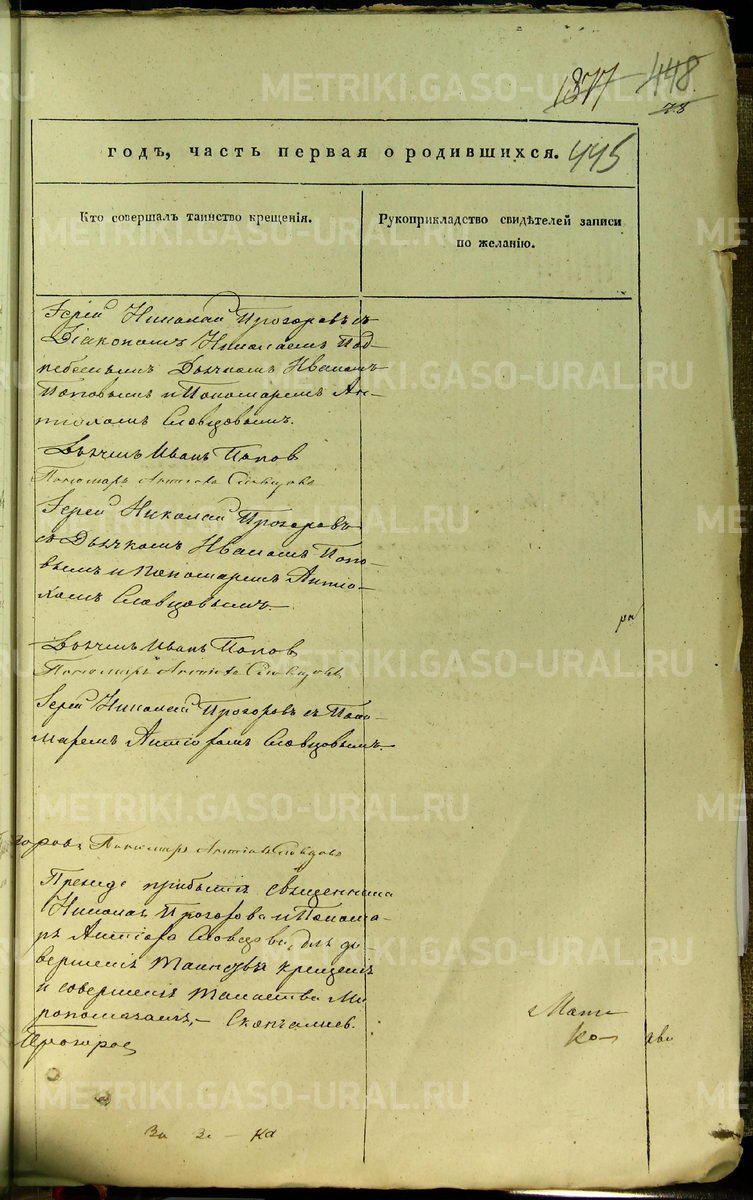 1377 448
73
годъ, часть первая о родившихся. 445
Кто совершалъ таинство крещенія.
Рукоприкладство свидѣтелей записи
по желанію.
Іерей Николай Прогоровъ съ
Діакономъ Николаемъ Под-
Дьячкомъ Иваномъ
Поповымъ и Пономаремъ Ан-
тіохомъ Словцовымъ.
Дьячекъ Иванъ Попов
Пономарь Антіохъ Словцовъ
Іерей Николай Прогоровъ
съ Дьячкомъ Иваномъ Попо-
вымъ и Пономаремъ Антіо-
хомъ Словцовымъ.
Дьячекъ Иванъ Попов
Пономарь Антіохъ Словцовъ
Іерей Николай Прогоровъ съ Поно-
маремъ Антіохомъ Словцовымъ.
Пономарь Антіохъ Словцовъ
Прежде прибытія священника
Николая Прогорова и Понома-
ря Антіоха Словцова, для до-
вершенія таинства крещенія
и совершенія таинства Ми
ропомазанія, — Скончались.
METRIKI.GASO-URAL.RU